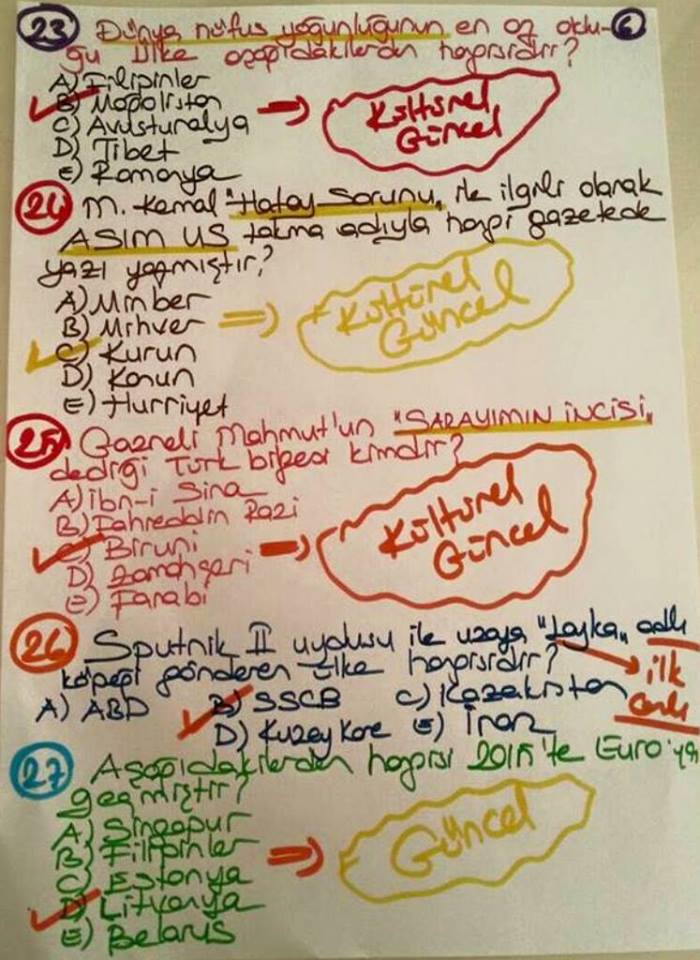 23 Dünya nüfus yoğunluğunun en az oldu- 6
ğu ülke aşağıdakilerden hangisidir?
A) Filipinler
B) Moğolistan
C) Avusturalya
D) Tibet
E) Romanya
Kültürel
Güncel
24 M. Kemal "Hatay Sorunu" ile ilgili olarak
ASIM US takma adıyla hangi gazetede
yazı yazmıştır?
A) Minber
B) Mihver
C) Kurun
D) Kanun
E) Hürriyet
Kültürel
Güncel
25 Gazneli Mahmut'un "SARAYIMIN İNCİSİ"
dediği Türk bilgesi kimdir?
A) İbn-i Sina
B) Fahreddin Razi
C) Biruni
D) Zamahşeri
E) Farabi
Kültürel
Güncel
26 Sputnik II uydusu ile uzaya "Layka" adlı
köpeği gönderen ülke hangisidir?
ilk
canlı
A) ABD B) SSCB C) Kazakistan
D) Kuzey Kore E) İran
27 Aşağıdakilerden hangisi 2015'te Euro'ya
geçmiştir?
A) Singapur
B) Filipinler
C) Estonya
D) Litvanya
E) Belarus
Güncel